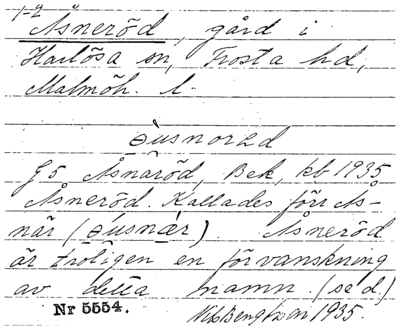 1-2
Åsneröd, gård i
Harlösa sn, Frosta hd,
Malmöh. l.
ɵusnorəd
G 5 Åsnäröd, Bek, kb 1935
Åsneröd. Kallades förr Ås-
när (ɵusnær). Åsneröd
är troligen en förvanskning
av detta namn. (se d.)
Nr 5554.
Bengtson 1935.